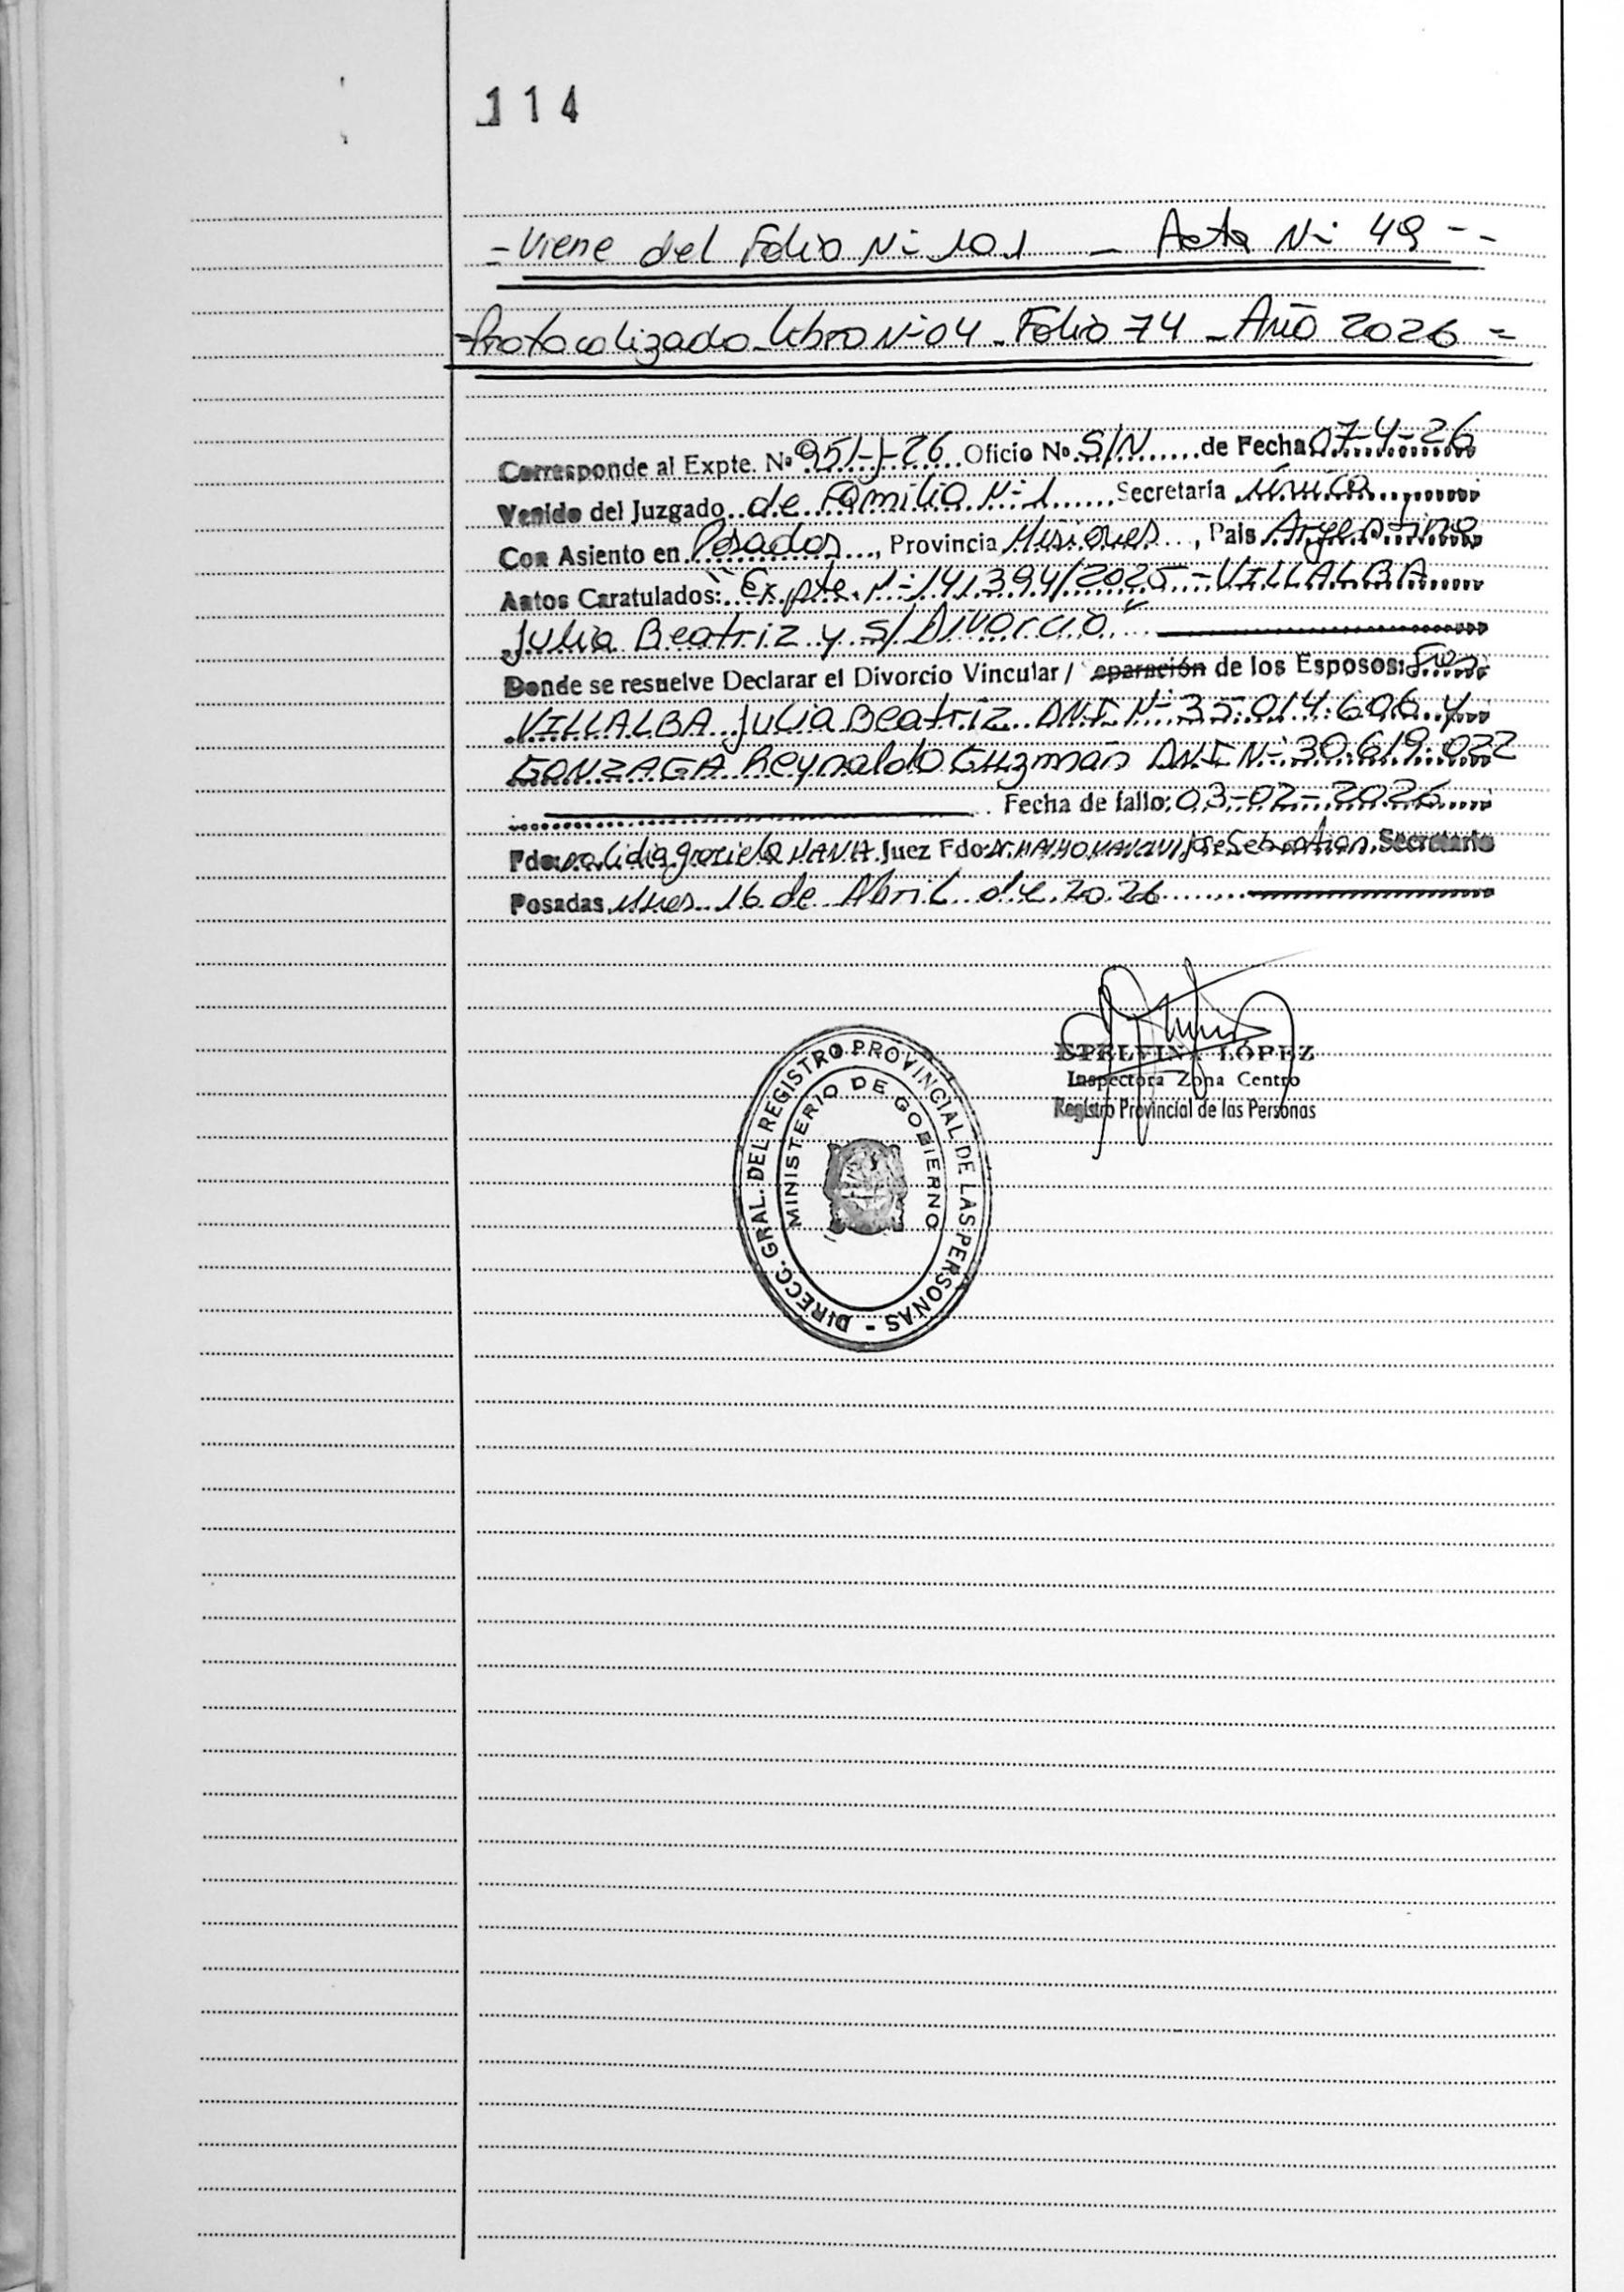 114
- Viene del Folio Nº 101 - Acta Nº 49 --
- Protocolizado libro Nº 04 - Folio 74 - Año 2026 =
Corresponde al Expte. Nº 951-J-26 Oficio No S/N de Fecha 07-4-26
Venido del Juzgado de Familia Nº 1 Secretaría Única
Con Asiento en Posadas, Provincia Misiones, Pais Argentina
Autos Caratulados: "Expte. Nº 141.394/2025 - VILLALBA
Julia Beatriz y s/ Divorcio"
Donde se resuelve Declarar el Divorcio Vincular / eparación de los Esposos:
VILLALBA Julia Beatriz DNI Nº 35.014.606 y
GONZAGA Reynaldo Guzmán DNI Nº 30.619.022
Fecha de fallo: 03-02-2026
Fdo: Lidia Graciela Juez Fdo: Dr. José Sebastian Secretario
Posadas, Mnes. 16 de Abril de 2026
ETELVINA LÓPEZ
Inspectora Zona Centro
Registro Provincial de las Personas
DIRECC. GRAL. DEL REGISTRO PROVINCIAL DE LAS PERSONAS -
MINISTERIO DE GOBIERNO